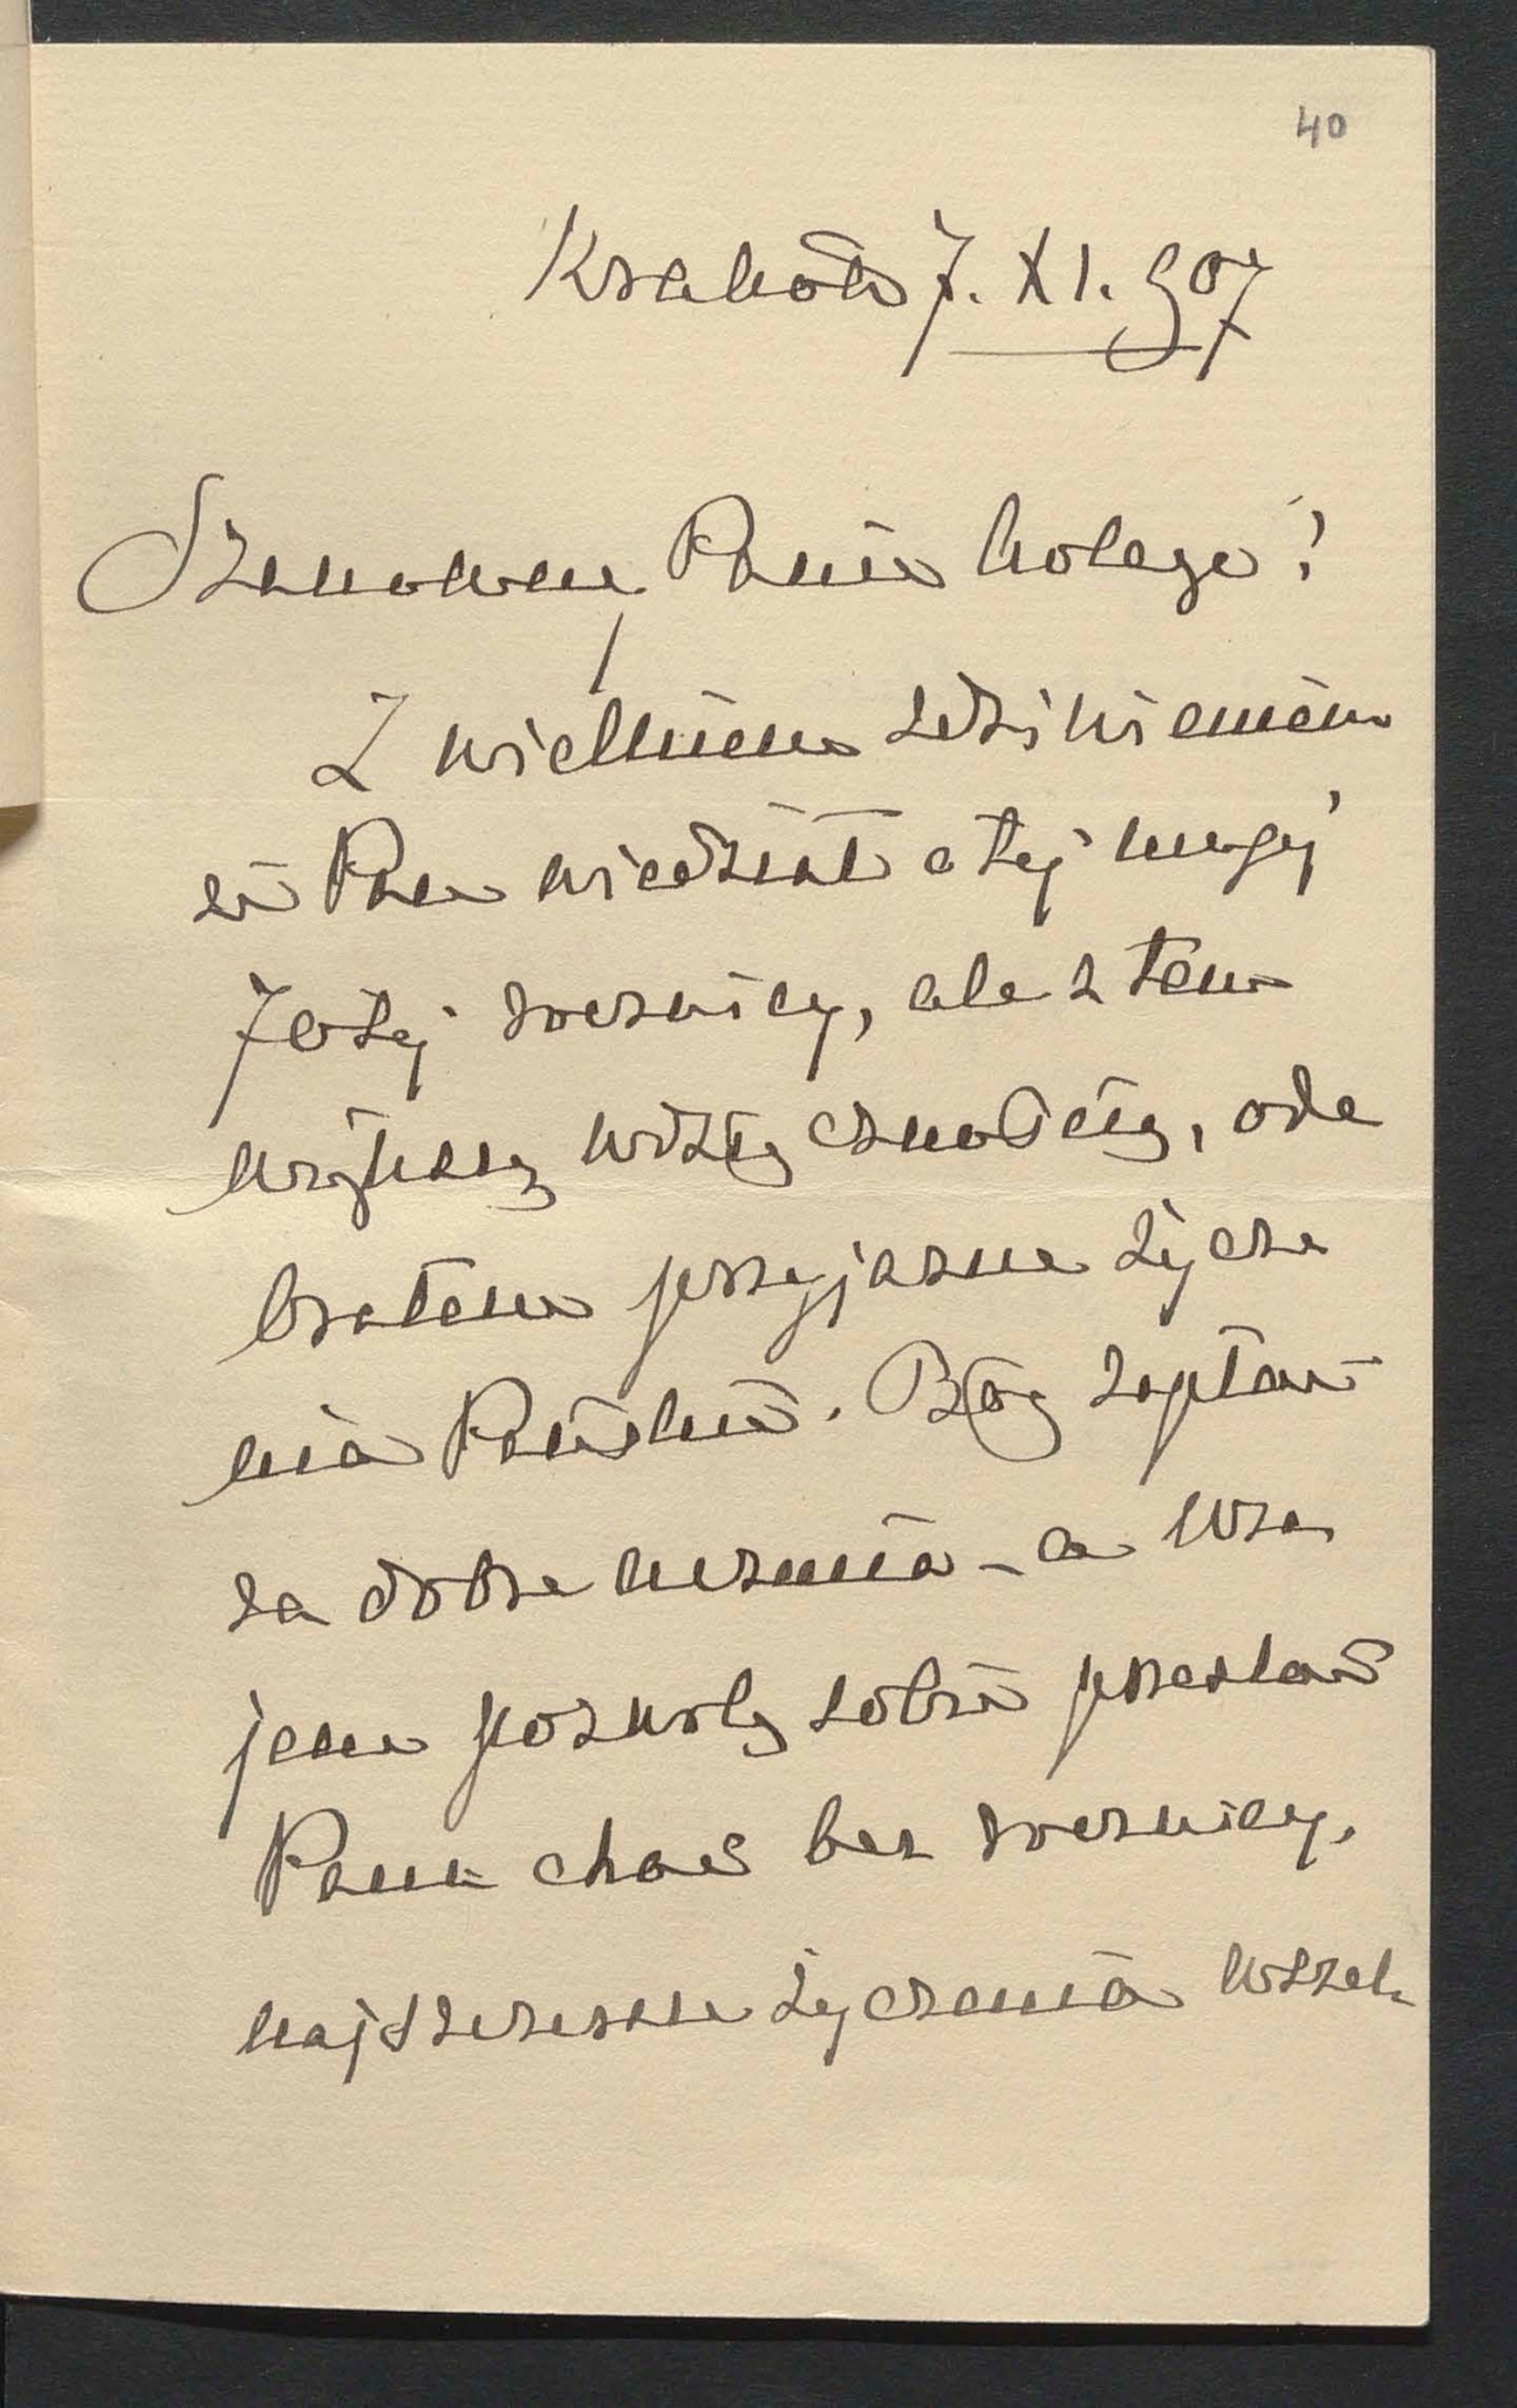 40
Kraków 7. XI. 907
Szanowny Panie Kolego!
Z wielkiem zdziwieniem
że Pan wiedział o tej mojej
70tej rocznicy, ale z tem
większą wdzięcznością, ode
brałem przyjazne życze
nia Pańskie. Bóg zapłać
za dobre życzenia - a wza
jem pozwolę sobie przesłać
Panu choć bez rocznicy,
najszczersze życzenia wszel-